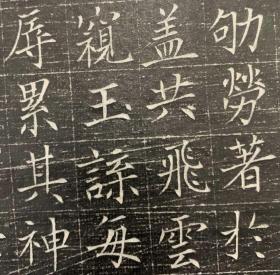 劬勞著於
盖共飛雲
窺玉每
累其神